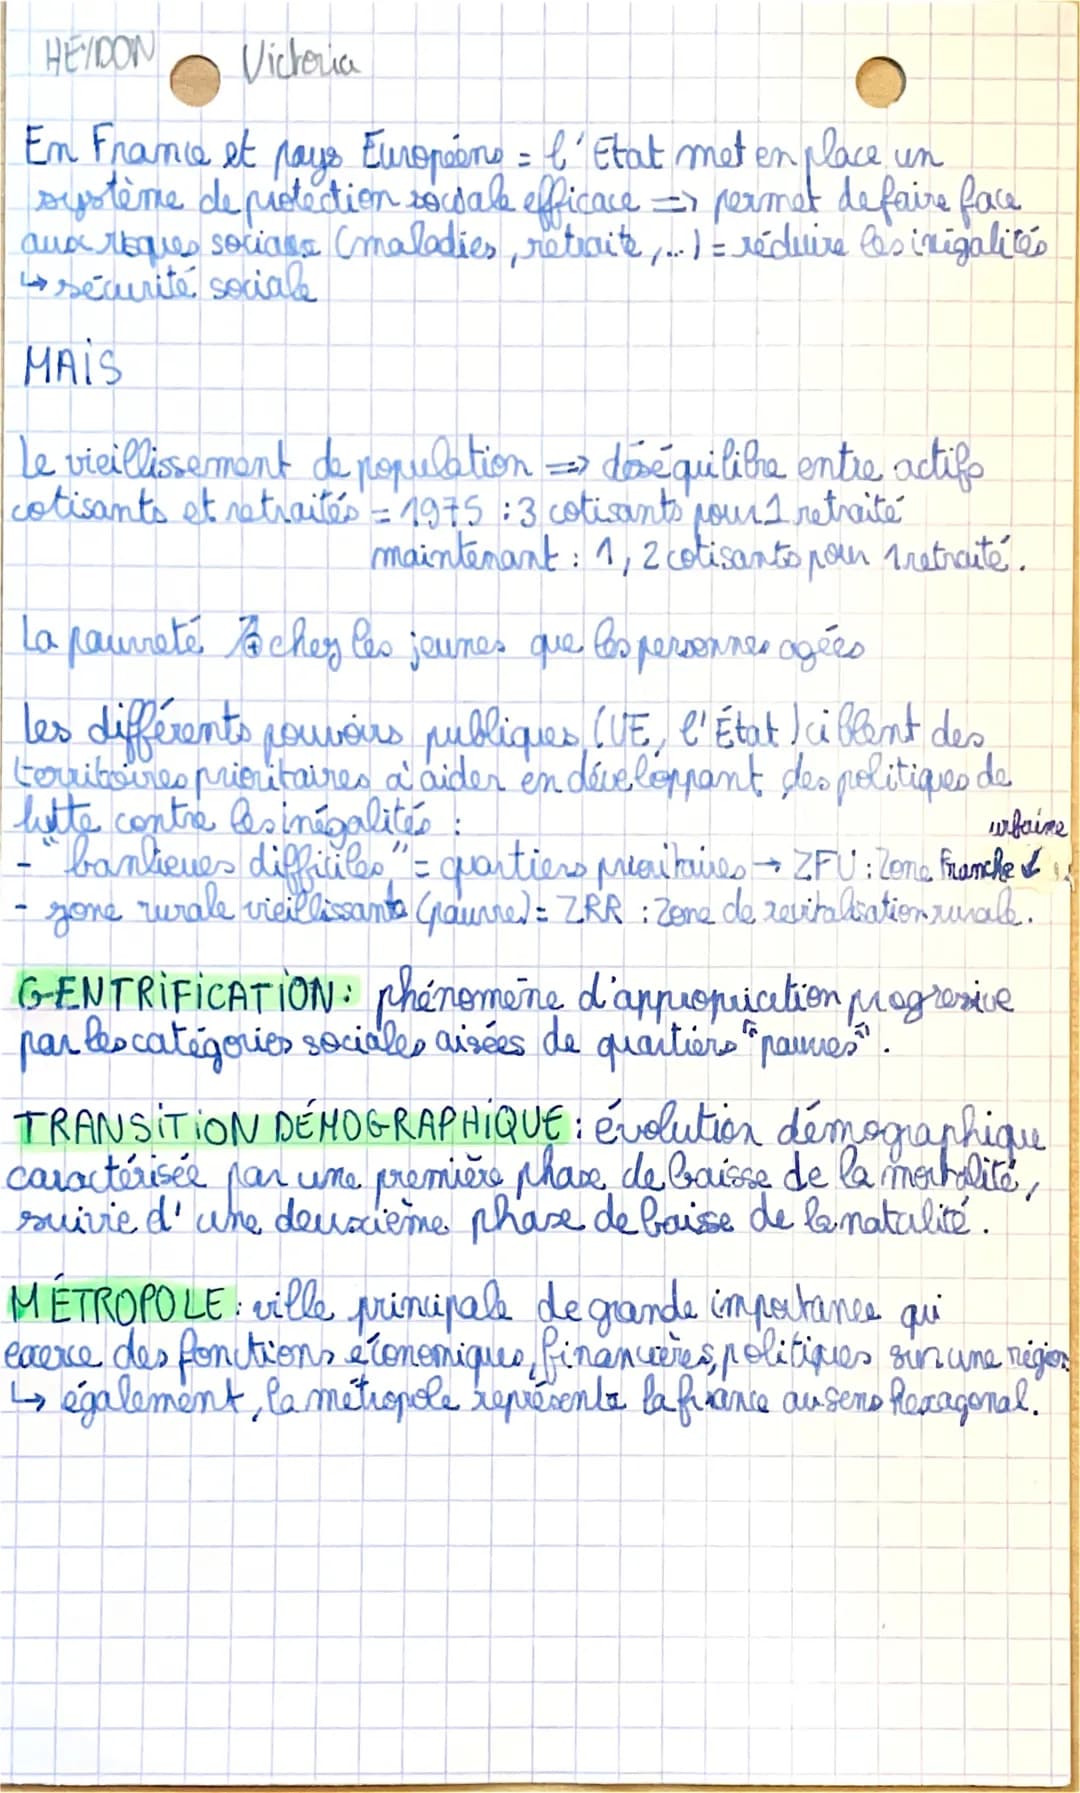 HEYDON Victoria
En France et pays Européens = l'Etat met en place un
système de protection sociale efficace => permet de faire face
aux risques sociaux (maladies, retraite,...) = réduire les inégalités
↳ sécurité sociale
MAIS
Le vieillissement de population => déséquilibre entre actifs
cotisants et retraités = 1975 : 3 cotisants pour 1 retraité
maintenant : 1,2 cotisants pour 1 retraité.
La pauvreté chez les jeunes que les personnes agées
Les différents pouvoirs publiques (UE, l'État) ciblent des
territoires prioritaires à aider en développant des politiques de
lutte contre les inégalités :
urbaine
- "banlieues difficiles" = quartiers prioritaires → ZFU : Zone Franche ↓
- zone rurale vieillissante (pauvre) = ZRR : Zone de revitalisation rurale.
GENTRIFICATION : phénomène d'appropriation progresive
par les catégories sociales aisées de quartiers "pauvres".
TRANSITION DÉMOGRAPHIQUE : évolution démographique
caractérisée par une première phase de baisse de la mortalité,
suivie d'une deuxième phase de baisse de la natalité.
MÉTROPOLE : ville principale de grande importance qui
exerce des fonctions économiques, financières, politiques sur une région
↳ également, la métropole représente la france au sens hexagonal.